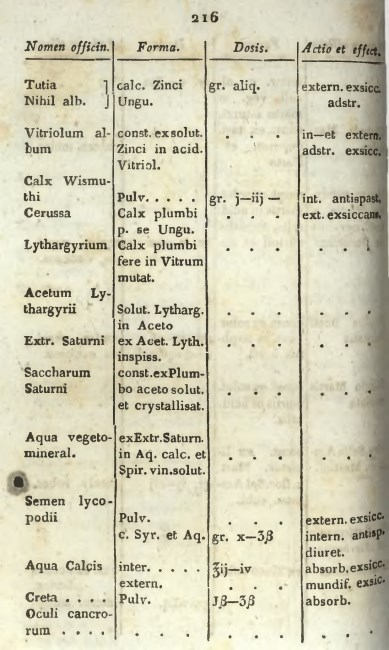 216
Nomen officin. Forma. Dosis. Actio et effect.
Tutia ] calc. Zinci gr. aliq. extern. exsicc.
Nihil alb. ] Ungu. adstr.
Vitriolum al- const. exsolut. . . . in—et extern.
bum Zinci in acid. adstr. exsicc.
Vitriol.
Calx Wismu-
thi Pulv. . . . . gr. j—iij — int. antispast.
Cerussa Calx plumbi . . . ext. exsiccans.
p. se Ungu.
Lythargyrium Calx plumbi . . . . . .
fere in Vitrum
mutat.
Acetum Ly-
thargyrii Solut. Lytharg. . . . . . .
in Aceto
Extr. Saturni ex Acet. Lyth. . . . . . .
inspiss.
Saccharum const.exPlum-
Saturni bo aceto solut. . . . . . .
et crystallisat.
Aqua vegeto- exExtr.Saturn.
mineral. in Aq. calc. et . . . . . .
Spir. vin.solut.
Semen lyco-
podii Pulv. . . . extern. exsicc.
c. Syr. et Aq. gr. x—Ʒβ intern. antisp.
diuret.
Aqua Calcis inter. . . . . ℥ij—iv absorb.exsicc.
extern. . . . mundif. exsic.
Creta . . . . Pulv. ℈β—Ʒβ absorb.
Oculi cancro-
rum . . . . . . . . . . . . .